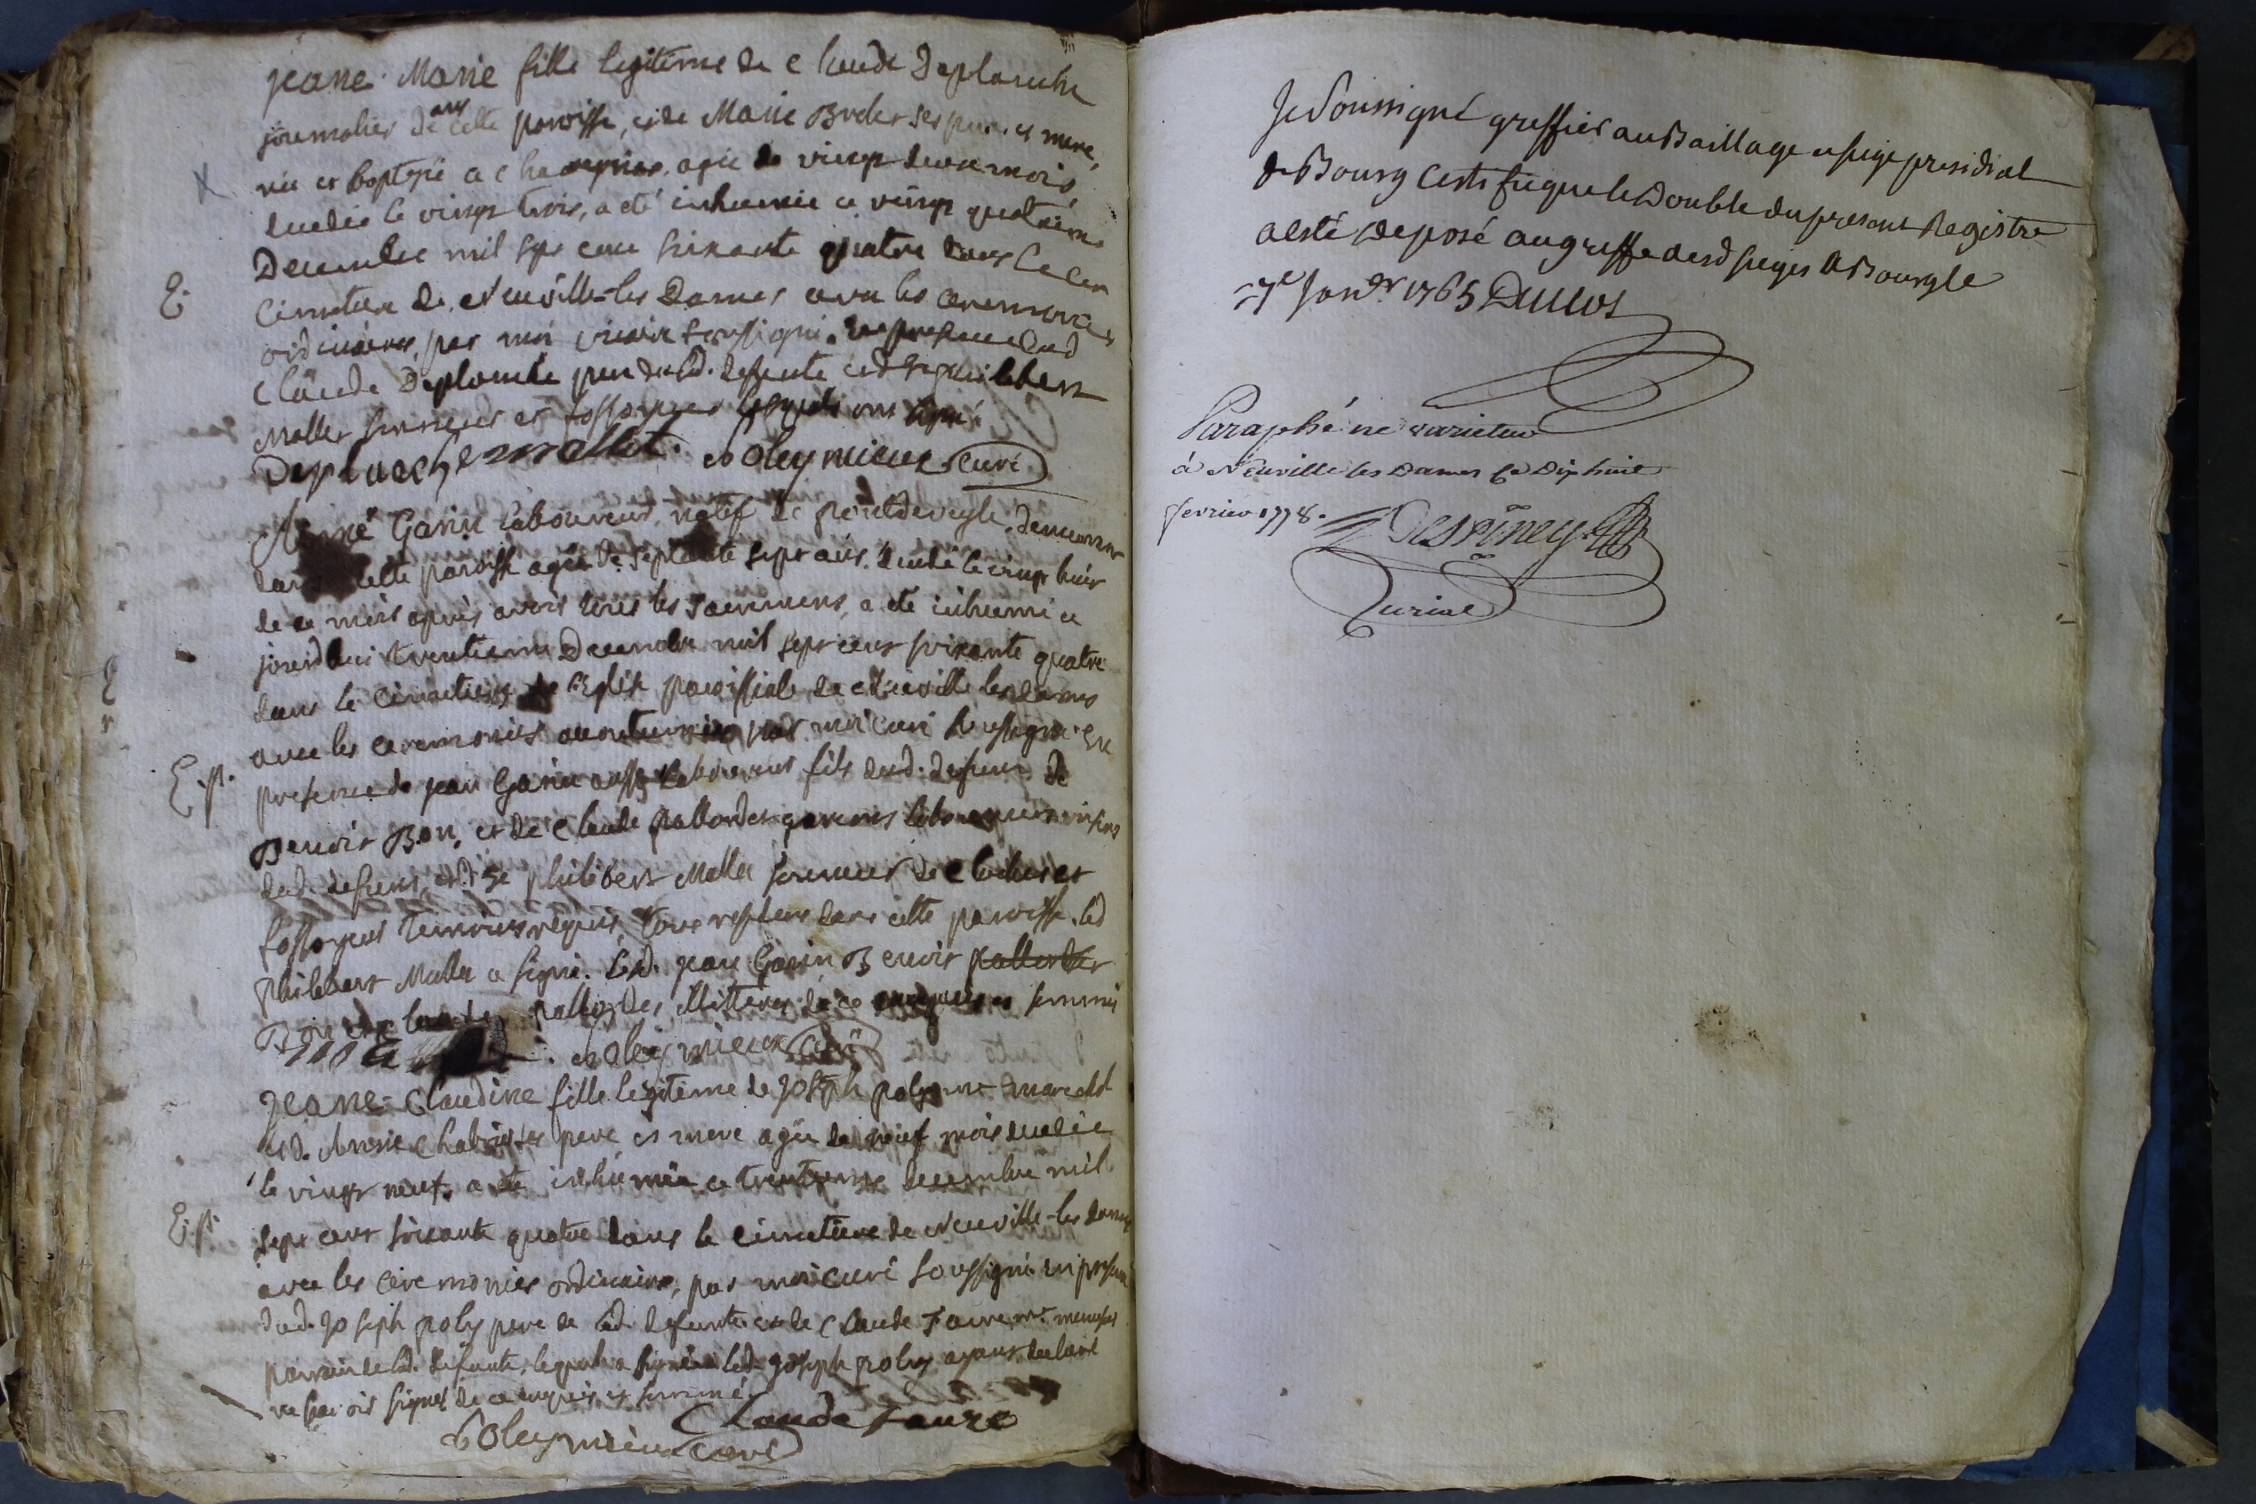 jeane Marie fille legitime de Claude Deplanche
journalier de cette paroisse, et de Marie Broder ses pere et mere,
née et baptisée a agée de vingt deux mois
decedée le vingt trois, a eté inhumée ce vingt quatrieme
Decembre mil sept cent soixante quatre dans le
E.
cimetiere de Neuville-les Dames avec les ceremonies
ordinaires, par moi soussigné, en presence dud
Claude Deplanche pere de lad. defunte et de philibert
Mallet sonneur et fossoyeur lesquels ont signé
Deplanche mallet. curé
Aimé Garin laboureur, natif de pontdeveyle, demeurant
dans cette paroisse agé de septante sept ans, decedé le vingt huit
de ce mois après avoir reçu les sacremens, a eté inhumé ce
jourdhui trentieme Decembre mil sept cent soixante quatre
dans le cimetiere de l'Eglise paroissiale de Neuville les dames
avec les ceremonies accoutumées par moi curé soussigné en
E.p.
presence de jean Garin aussi laboureur fils dud. defunt de
Benoit Bon, et de Claude pallordet laboureurs voisins
dud. defunt, et de philibert Mallet sonneur de cloches et
fossoyeur temoins requis, tous residens dans cette paroisse. led
philibert Mallet a signé. led. jean Garin Benoit pallordet
Bon et Claude pallordet illitterés de ce enquis et sommés
curé
jeane-Claudine fille legitime de joseph poly me marechal
et d. Annie pere et mere agée de neuf mois decedée
le vingt neuf, a eté inhumée ce trentieme decembre mil
E.p.
sept cent soixante quatre dans le cimetiere de Neuville-les dames
avec les ceremonies ordinaires, par moi curé soussigné en presence
dud. joseph poly pere de lad. defunte et de Claude Faure me menuisier
parrain de lad. defunte, lequel a signé et led. joseph poly ayant declaré
ne sçavoir signer de ce enquis et sommé
Claude faure
curé
Je Soussigné greffier au Baillage et siege presidial
de Bourg Certifie que le Double du present Registre
a esté deposé au greffe desd sieges a Bourg le
Janver 1765 Duclos
Paraphé ne varietur
à Neuville les Dames ce Dix huit
fevrier 1778.